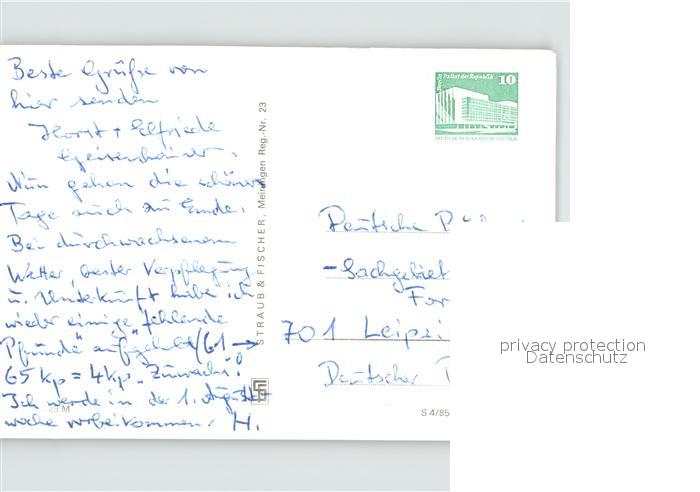 Beste Grüße von
hier senden
Horst + Elfriede
Geisenhainer.
Nun gehen die schönen
Tage auch zu Ende.
Bei durchwachsenem
Wetter bester Verpflegung
u. Unterkunft habe ich
wieder einige "fehlende
Pfunde" aufgeholt (61 →
65 kp = 4 kp "Zuwachs"!
Ich werde in der 1. August
woche vorbeikommen. H.
20 M
STRAUB & FISCHER, Meiningen Reg.-Nr. 23
Berlin Palast der Republik 10
DEUTSCHE DEMOKRATISCHE REPUBLIK
Deutsche
-Sachgebiet
For
701 Leipzi
Deutscher
S 4/85
privacy protection
Datenschutz